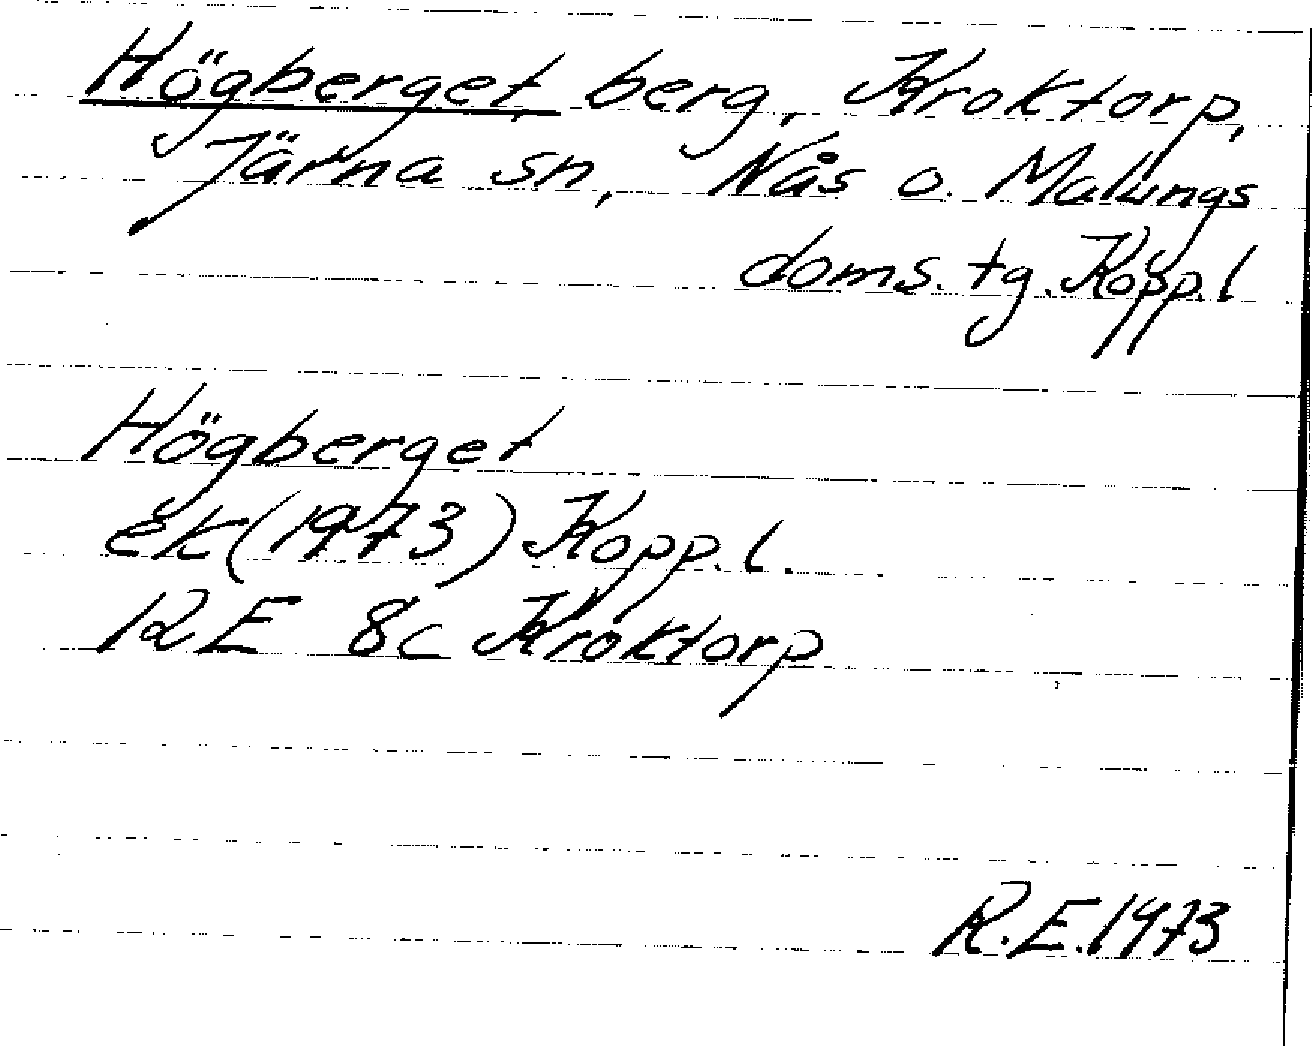 Högberget, berg, Kroktorp,
Järna sn, Nås o. Malungs
doms. tg. Kopp. l
Högberget
ek (1973) Kopp. l.
12 E 8c Kroktorp
R.E. 1973